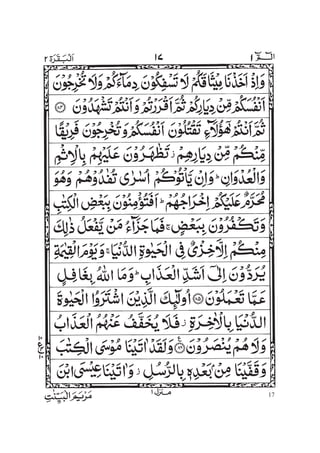 الٓمّٓ ۱ ۱۷ اَلْبَقَرَة ۲
وَاِذْ اَخَذْنَا مِيْثَاقَكُمْ لَا تَسْفِكُوْنَ دِمَآءَكُمْ وَلَا تُخْرِجُوْنَ
اَنْفُسَكُمْ مِّنْ دِيَارِكُمْ ثُمَّ اَقْرَرْتُمْ وَاَنْتُمْ تَشْهَدُوْنَ ۝۸۴
ثُمَّ اَنْتُمْ هٰٓؤُلَآءِ تَقْتُلُوْنَ اَنْفُسَكُمْ وَتُخْرِجُوْنَ فَرِيْقًا
مِّنْكُمْ مِّنْ دِيَارِهِمْ ز تَظٰهَرُوْنَ عَلَيْهِمْ بِالْاِثْمِ
وَالْعُدْوَانِ ط وَاِنْ يَّاْتُوْكُمْ اُسٰرٰى تُفٰدُوْهُمْ وَهُوَ
مُحَرَّمٌ عَلَيْكُمْ اِخْرَاجُهُمْ ط اَفَتُؤْمِنُوْنَ بِبَعْضِ الْكِتٰبِ
وَتَكْفُرُوْنَ بِبَعْضٍ ج فَمَا جَزَآءُ مَنْ يَّفْعَلُ ذٰلِكَ
مِنْكُمْ اِلَّا خِزْىٌ فِى الْحَيٰوةِ الدُّنْيَا ج وَيَوْمَ الْقِيٰمَةِ
يُرَدُّوْنَ اِلٰٓى اَشَدِّ الْعَذَابِ ط وَمَا اللّٰهُ بِغَافِلٍ
عَمَّا تَعْمَلُوْنَ ۝۸۵ اُولٰٓئِكَ الَّذِيْنَ اشْتَرَوُا الْحَيٰوةَ
الدُّنْيَا بِالْاٰخِرَةِ ز فَلَا يُخَفَّفُ عَنْهُمُ الْعَذَابُ
وَلَا هُمْ يُنْصَرُوْنَ ۝۸۶ وَلَقَدْ اٰتَيْنَا مُوْسَى الْكِتٰبَ
وَقَفَّيْنَا مِنْۢ بَعْدِهٖ بِالرُّسُلِ ز وَاٰتَيْنَا عِيْسَى ابْنَ
مَرْيَمَ الْبَيِّنٰتِ منزل ۱ 17